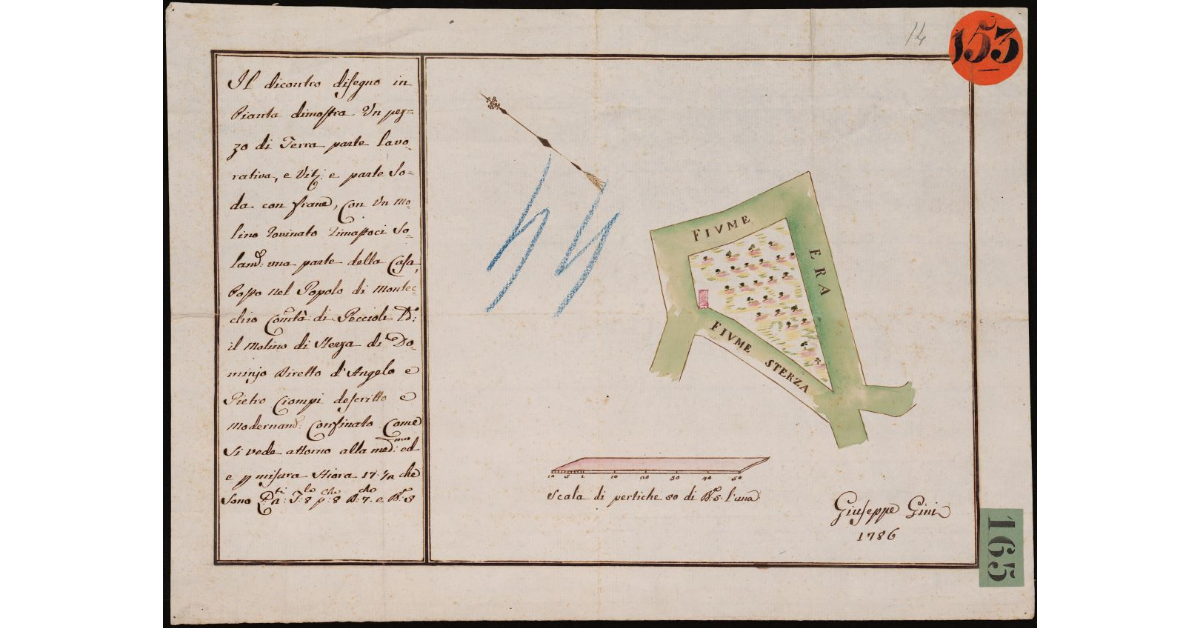 14
153
Il dicontro disegno in
Pianta dimostra Un pez=
zo di Terra parte lavo=
rativa, e Vit: e parte So=
da con frane, Con Un Mo=
lino Rovinato Rimastoci So=
lam: una parte della Casa,
Posto nel Popolo di Montec=
chio Com:tà di Peccioli D:
il Molino di Sterza di Do=
minio Diretto d'Angelo e
Pietro Ciompi descritto e
modernam: Confinato Come
Si vede attorno alla med:ma ed
e p misura Stiora 17 1/2 che
Sono
FIUME
ERA
FIVME STERZA
10 5 10 20 30 40 50
Scala di pertiche 50 di B: 5 l'una
Giuseppe Gini
1786
165